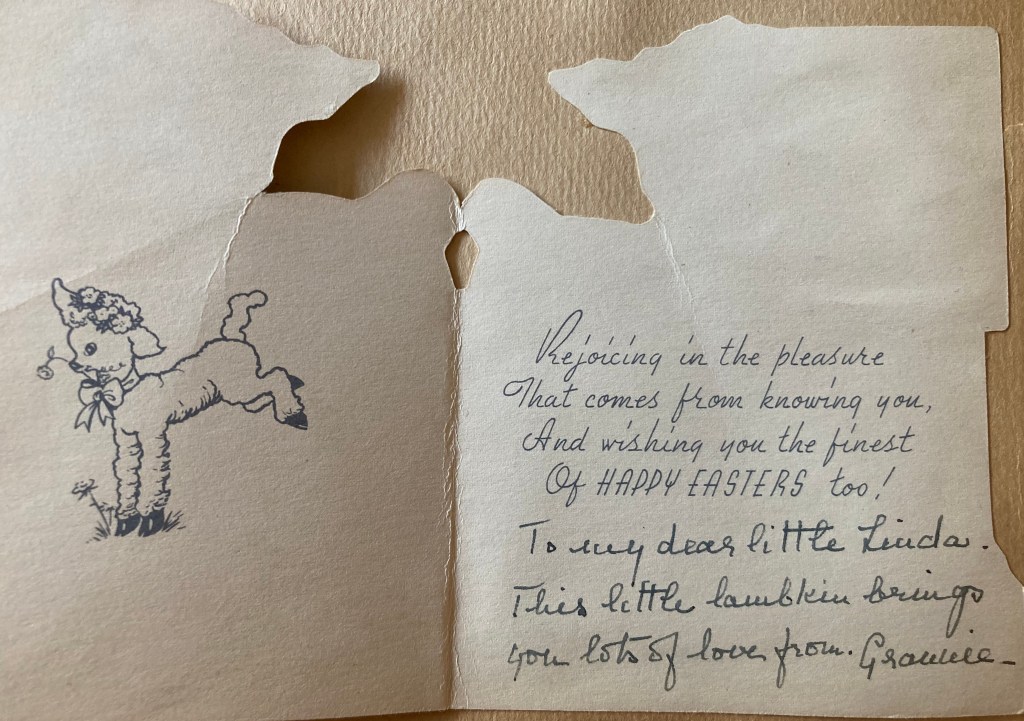 Rejoicing in the pleasure
That comes from knowing you,
And wishing you the finest
Of HAPPY EASTERS too!
To my dear little Linda.
This little lambkin brings
you lots of love from. Grannie-